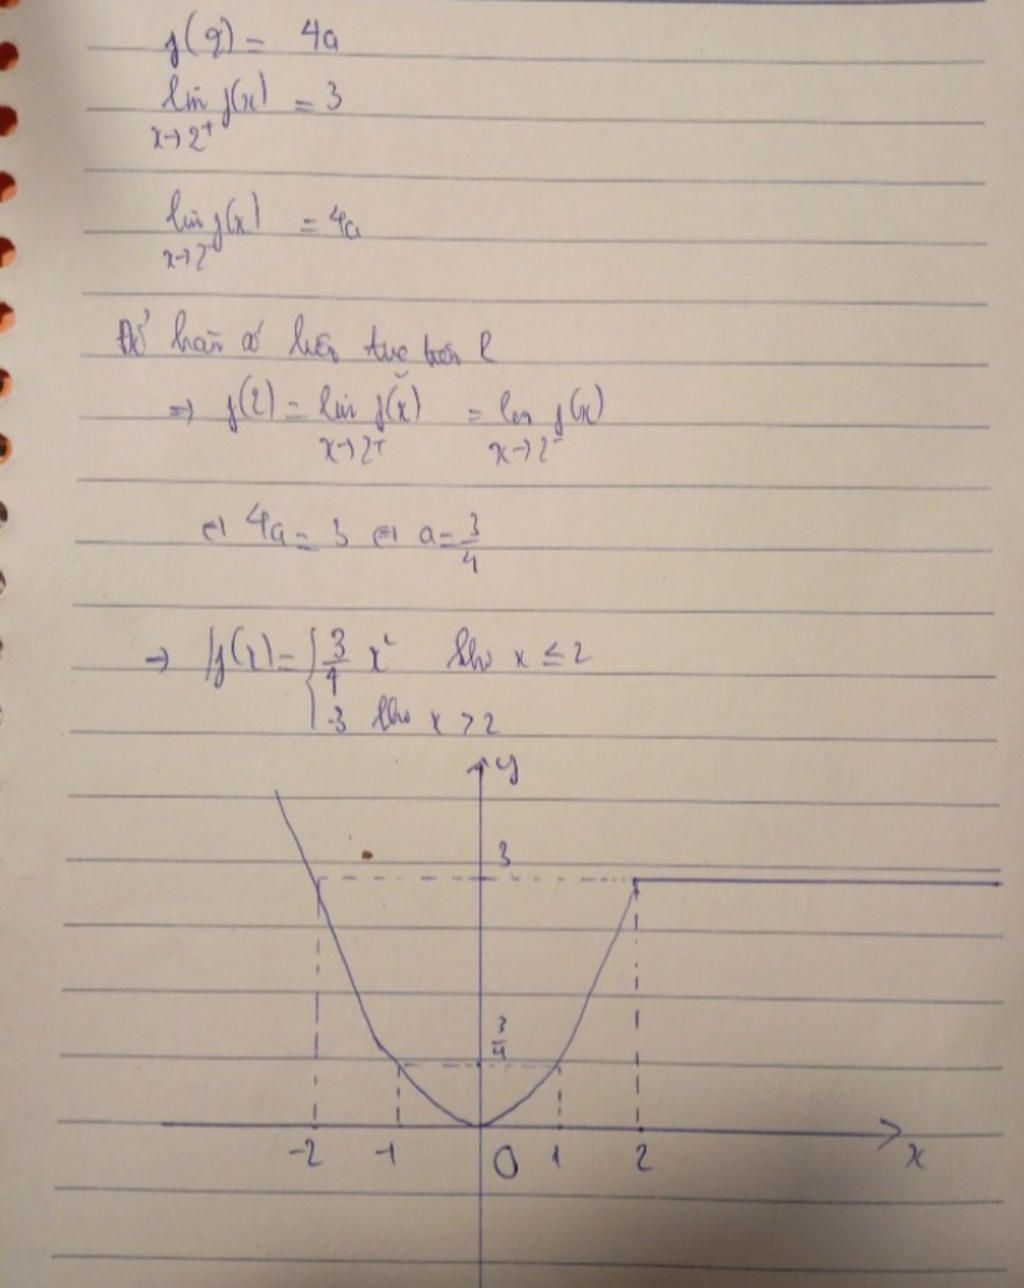 f(2) = 4a
lim f(x) = 3
x→2⁺
lim f(x) = 4a
x→2⁻
Để hàm số liên tục trên R
⇒ f(2) = lim f(x) = lim f(x)
x→2⁺ x→2⁻
⇔ 4a = 3 ⇔ a = 3/4
→ f(x) = { 3/4 x² khi x ≤ 2
3 khi x > 2
y
3
3/4
-2 -1 O 1 2 x